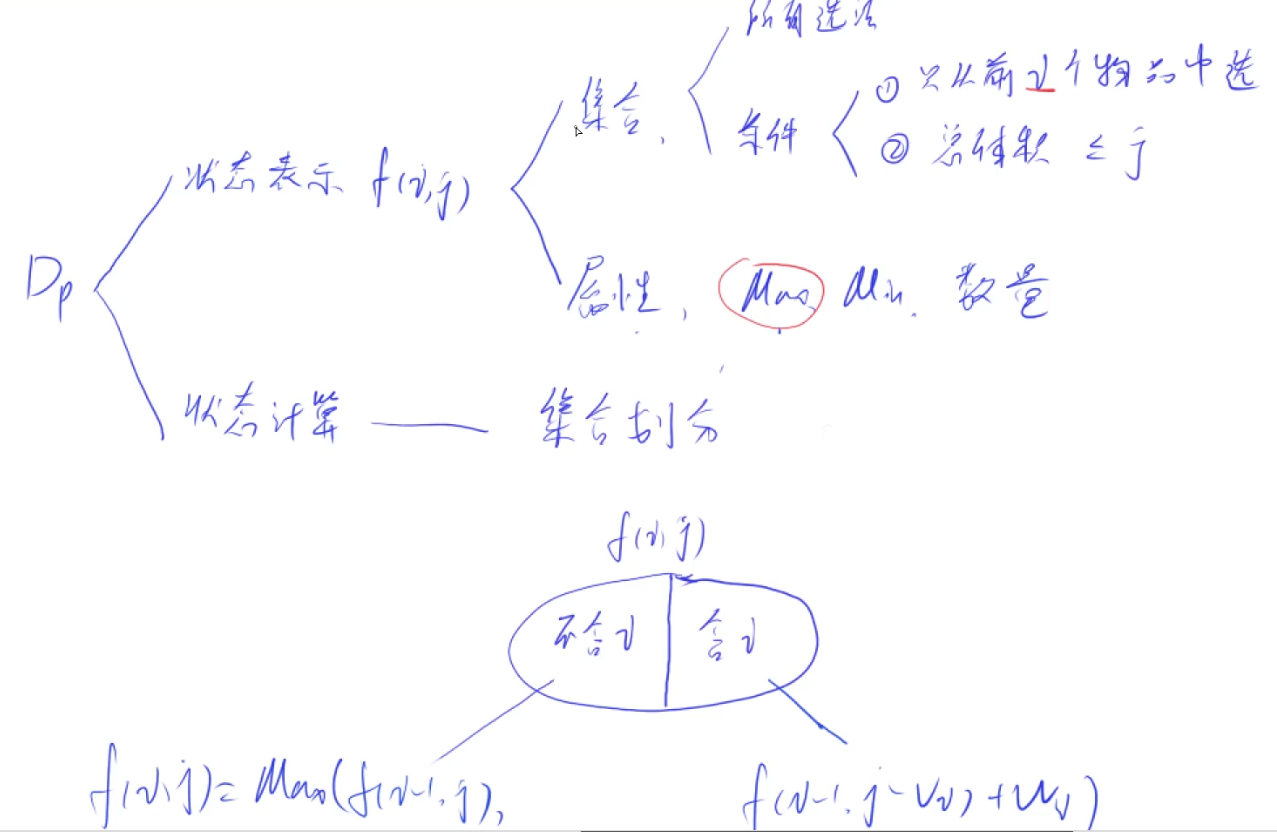 所有选法
集合,
条件
① 只从前i个物品中选
② 总体积 ≤ j
状态表示 f(i,j)
Dp
属性, Max, Min, 数量
状态计算 —— 集合划分
f(i,j)
不含i 含i
f(i,j)= Max(f(i-1,j), f(i-1,j-Vi)+Wi)